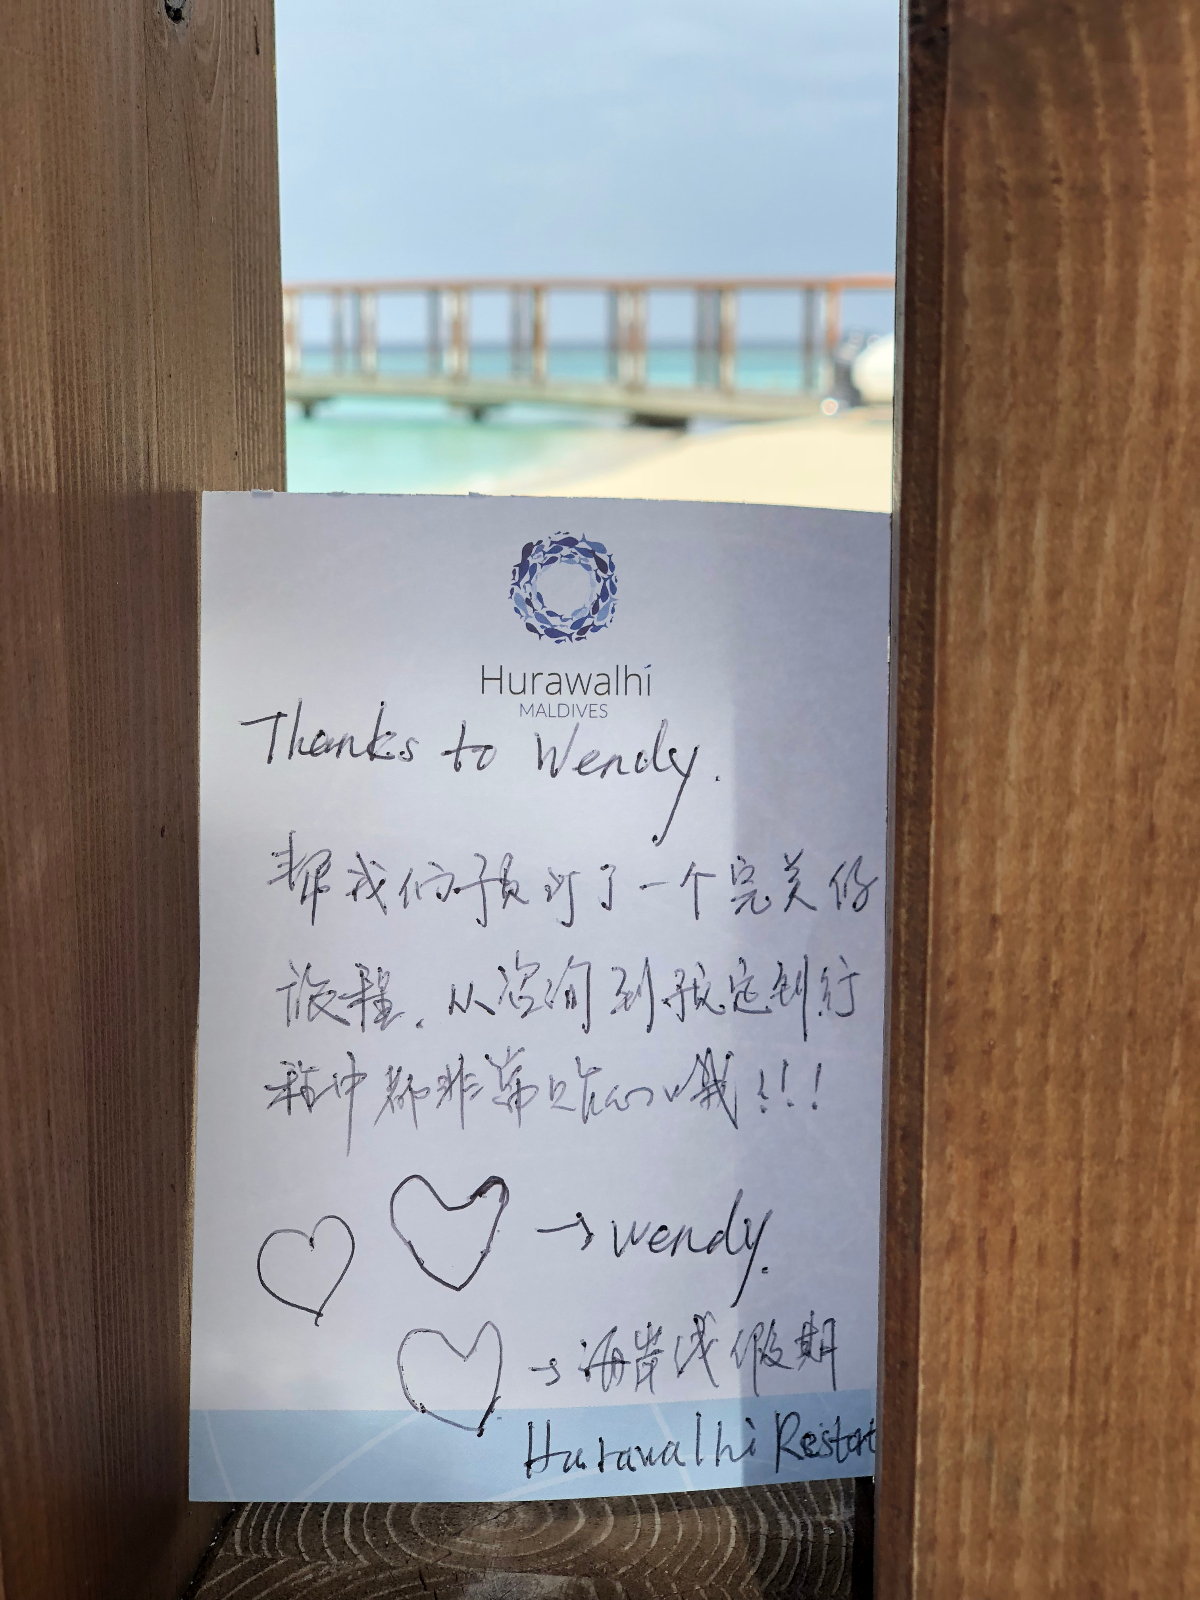 Hurawalhi
MALDIVES
Thanks to Wendy.
帮我们预订了一个完美的
旅程.从咨询到预定到行
程中都非常贴心哦!!!
→ wendy.
→ 海岸线假期
Hurawalhi Resort